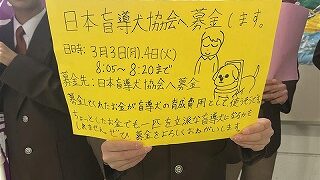 日本盲導犬協会へ募金します。
日時:3月3日(月).4日(火)
8:05～8:20まで
募金先:日本盲導犬協会へ募金
募金してくれたお金が盲導犬の育成費用として使
ちょっとしたお金でも一匹を立派な盲導犬になるかも
しれません。ぜひ募金をよろしくおねがいします。